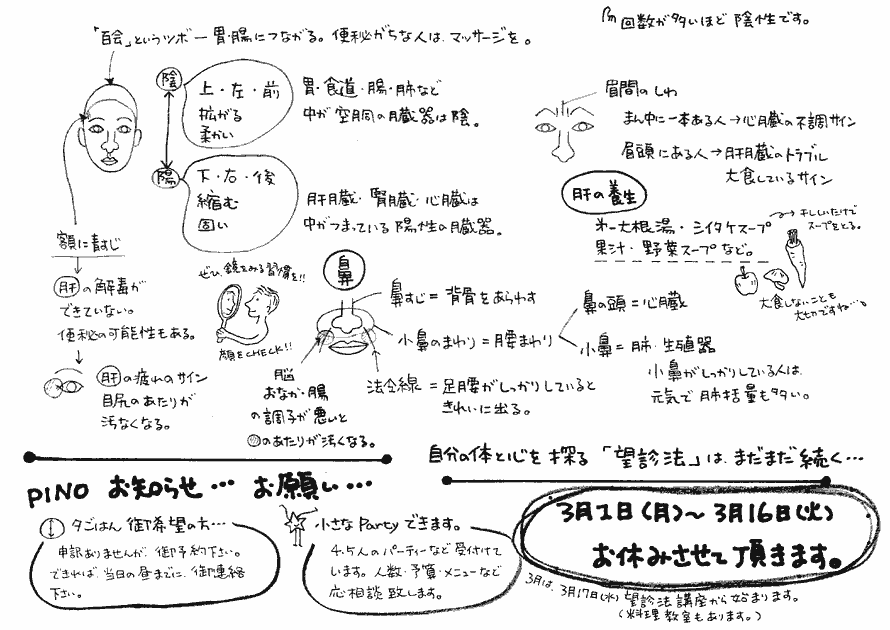 「百会」というツボー胃・腸につながる。便秘がちな人は、マッサージを。
回数が多いほど 陰性です。
陰
上・左・前
拡がる
柔かい
胃・食道・腸・肺など
中が空胴の臓器は陰。
陽
下・右・後
縮む
固い
肝臓・腎臓・心臓は
中がつまっている陽性の臓器。
眉間のしわ
まん中に一本ある人→心臓の不調サイン
眉頭にある人→肝臓のトラブル
大食しているサイン
肝の養生
第一大根湯・シイタケスープ
果汁・野菜スープなど。
干ししいたけで
スープをとる。
大食しないことも
大切ですね…。
額に青すじ
肝の解毒が
できていない。
便秘の可能性もある。
肝の疲れのサイン
目尻のあたりが
汚なくなる。
ぜひ、鏡をみる習慣を!!
顔をCHECK!!
鼻
鼻すじ=背骨をあらわす
小鼻のまわり=腰まわり
鼻の頭=心臓
小鼻=肺・生殖器
小鼻がしっかりしている人は、
元気で肺括量も多い。
脳
おなか・腸
の調子が悪いと
のあたりが汚くなる。
法令線=足腰がしっかりしていると
きれいに出る。
自分の体と心を探る「望診法」は、まだまだ続く…
PINO お知らせ… お願い…
夕ごはん御希望の方…
申訳ありませんが、御予約下さい。
できれば、当日の昼までに、御連絡
下さい。
小さなPartyできます。
4.5人のパーティーなど受付けて
います。人数・予算・メニューなど
応相談致します。
3月1日(月)〜3月16日(火)
お休みさせて頂きます。
3月は、3月17日(水)望診法講座から始まります。
(料理教室もあります。)